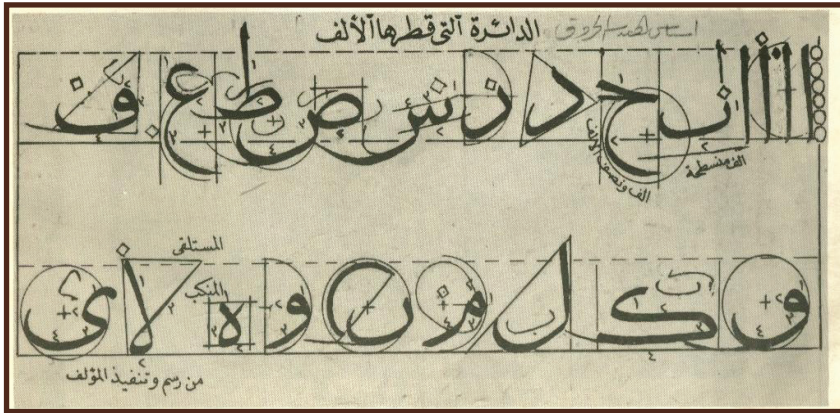 الدائرة التي قطرها الألف
ا ا ا ا ب ح د س ص ط ع ف
الف منسطحة
الف ونصف الالف
المستلقى
المنكب
ك ل م ن و ه لا ى
من رسم وتنفيذ المؤلف